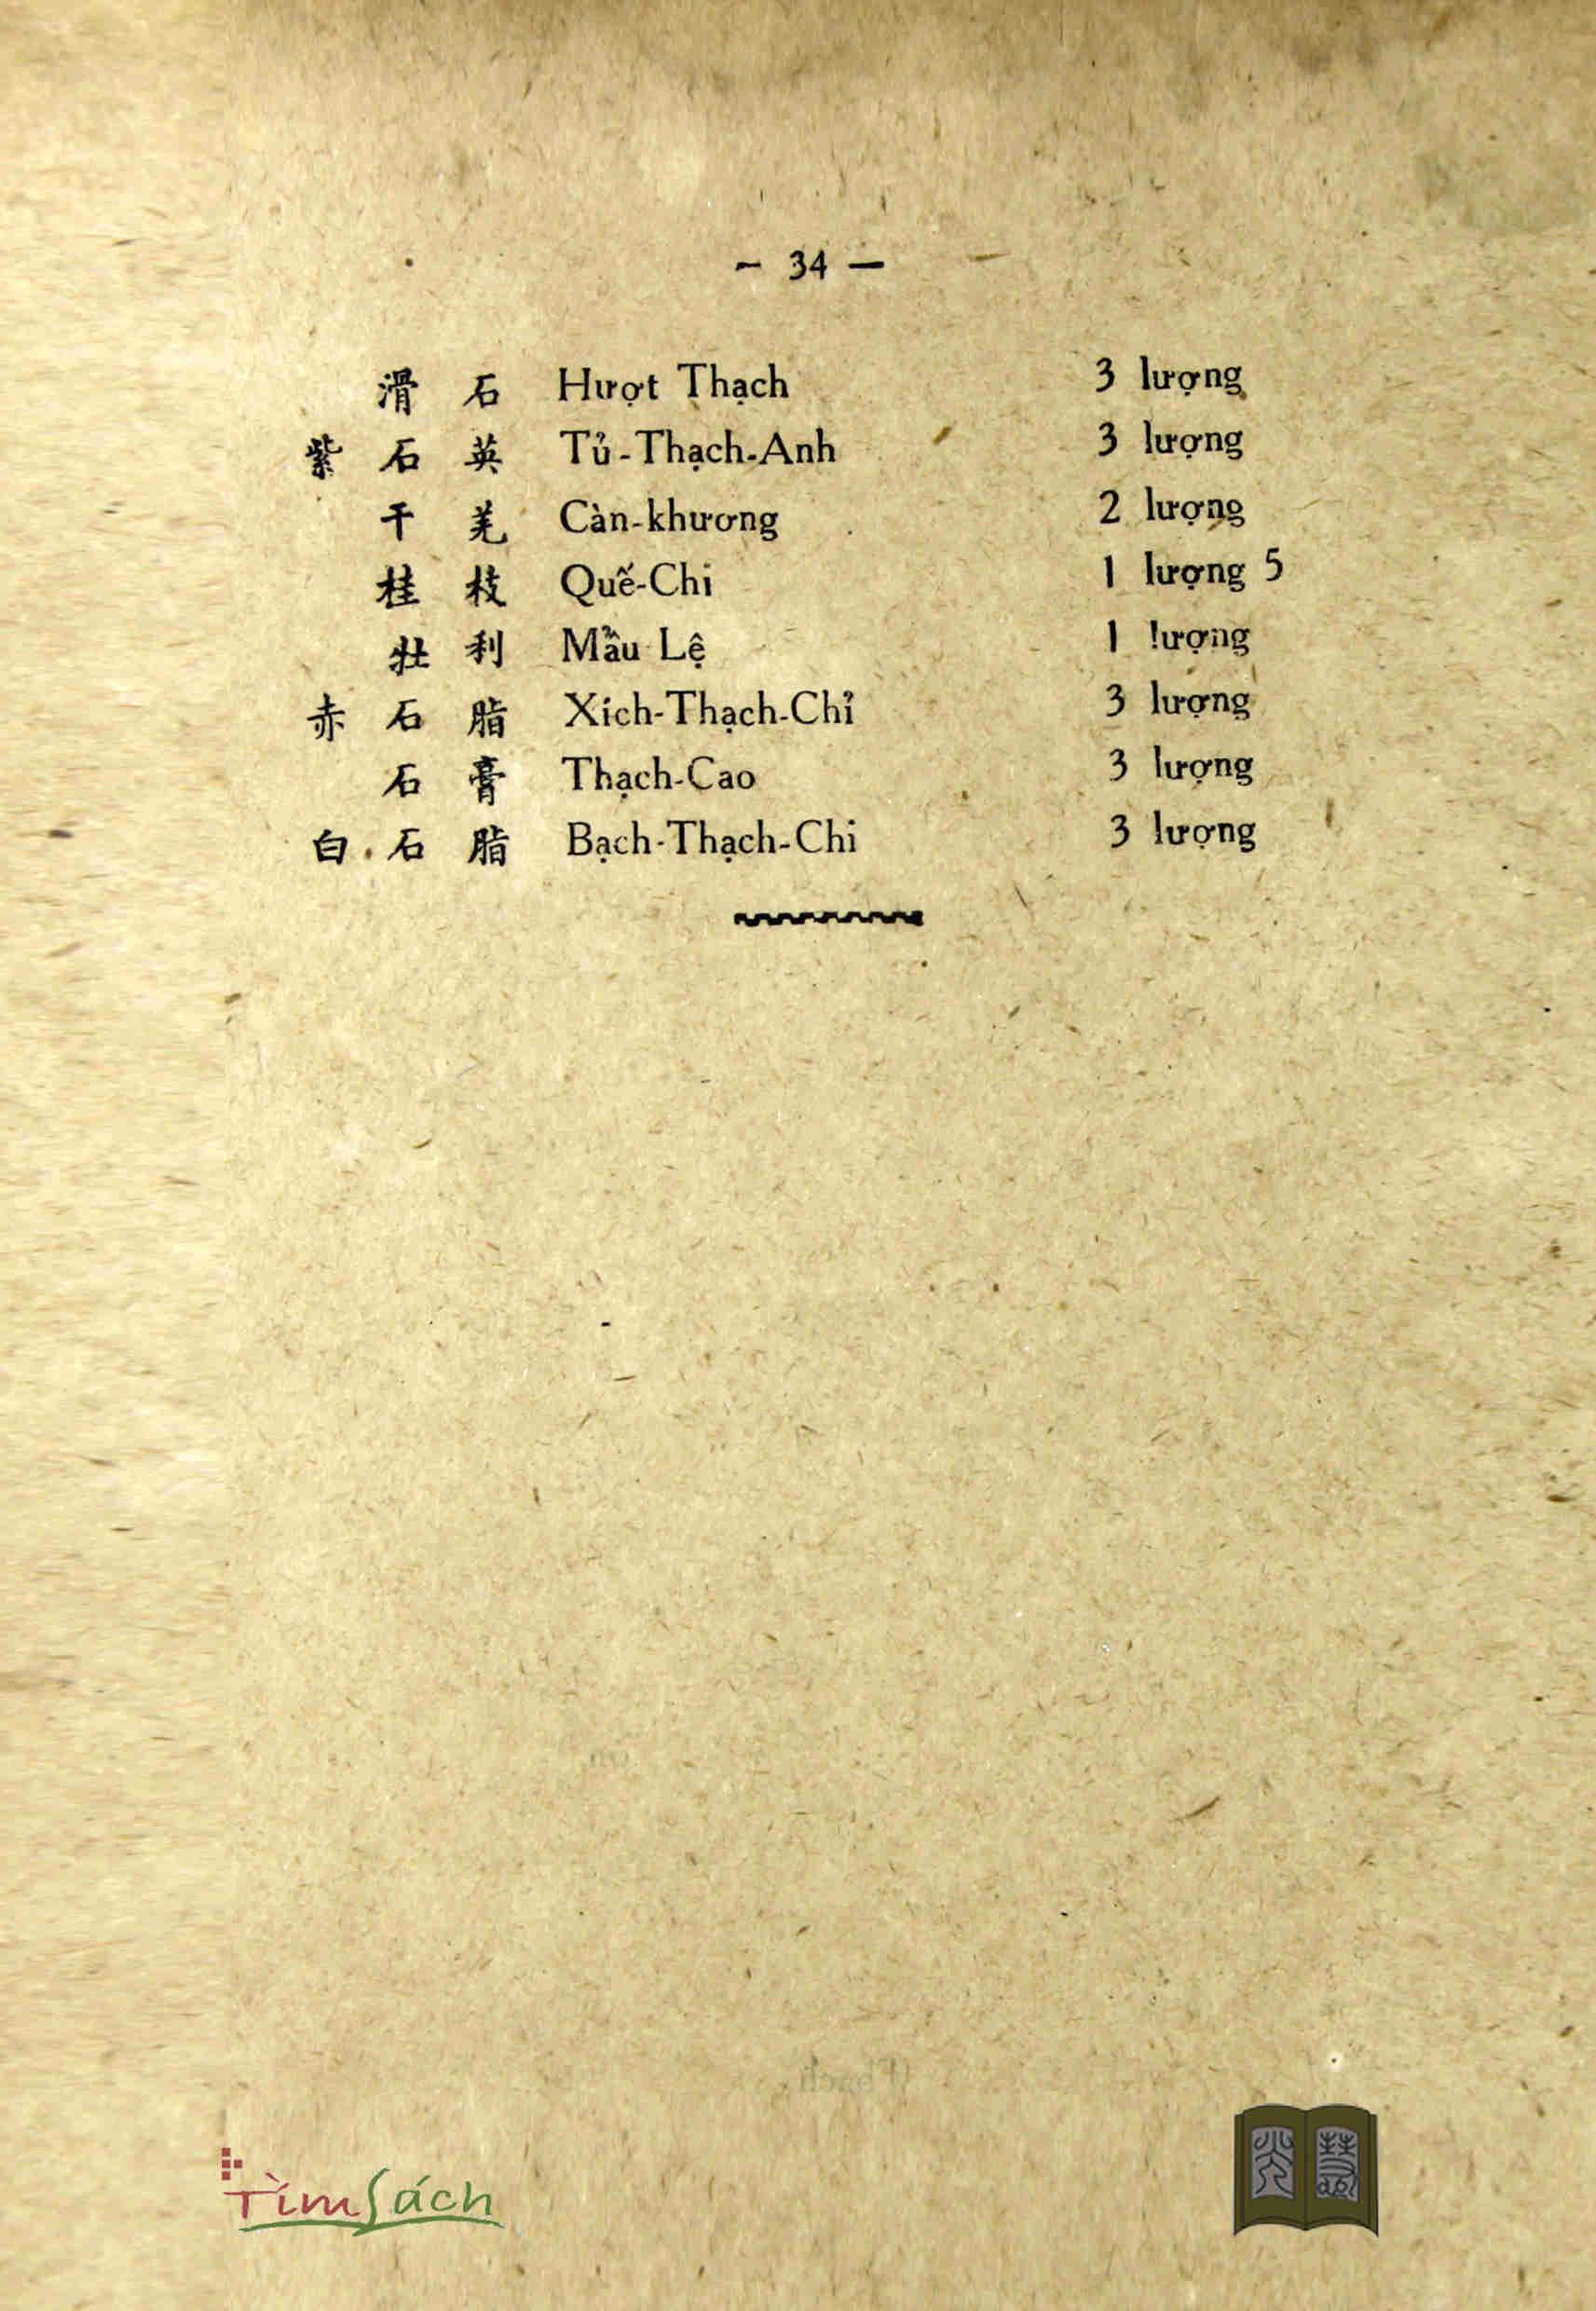 – 34 —
滑 石 Hượt Thạch 3 lượng
紫 石 英 Tủ-Thạch-Anh 3 lượng
干 羌 Càn-khương 2 lượng
桂 枝 Quế-Chi 1 lượng 5
牡 利 Mẫu Lệ 1 lượng
赤 石 脂 Xích-Thạch-Chỉ 3 lượng
石 膏 Thạch-Cao 3 lượng
白 石 脂 Bạch-Thạch-Chi 3 lượng
TìmSách